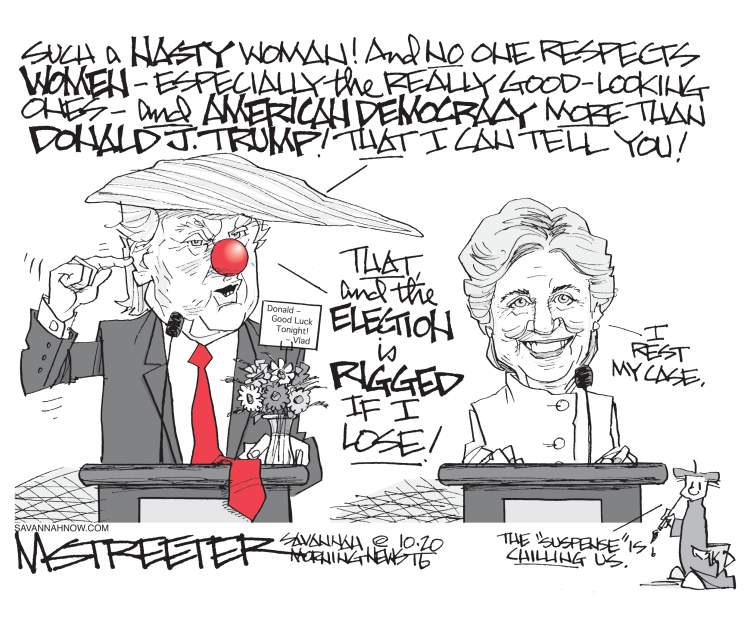 SUCH a NASTY WOMAN! And NO ONE RESPECTS
WOMEN - ESPECIALLY the REALLY GOOD-LOOKING
ONES - and AMERICAN DEMOCRACY MORE THAN
DONALD J. TRUMP! THAT I CAN TELL YOU!
THAT,
and the
ELECTION
is
RIGGED
IF I
LOSE!
Donald –
Good Luck
Tonight!
– Vlad
I
REST
MY CASE.
SAVANNAHNOW.COM
M STREETER
SAVANNAH © 10.20
MORNING NEWS
THE "SUSPENSE" IS
CHILLING US.